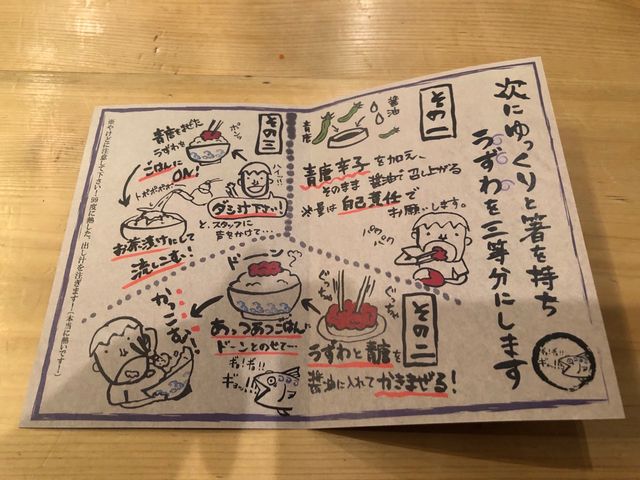 次にゆっくりと箸を持ち
うずわを三等分にします
その一
醤油
青唐
青唐辛子を加え、
そのまま醤油で召し上がる
※量は自己責任で
お願いします。
パク
パク
その二
ぐっちゃ
ぐっちゃ
うずわと青唐を
醤油に入れてかきまぜる!
ドーン
あっつあつごはんに
ドーンとのせて…
ギョ!ギョ!!
ギョッ!!!
かっこむ!
その三
青唐をまぜた
うずわを
ポンッ
ごはんに
ON!
ハイッ!!
トポポポポォー
ダシ汁下さい!
と、スタッフに
声をかけて…
お茶漬けにして
流しこむ!
※やけどに注意して下さい!99度に熱した、出し汁を注ぎます!(本当に熱いです!)